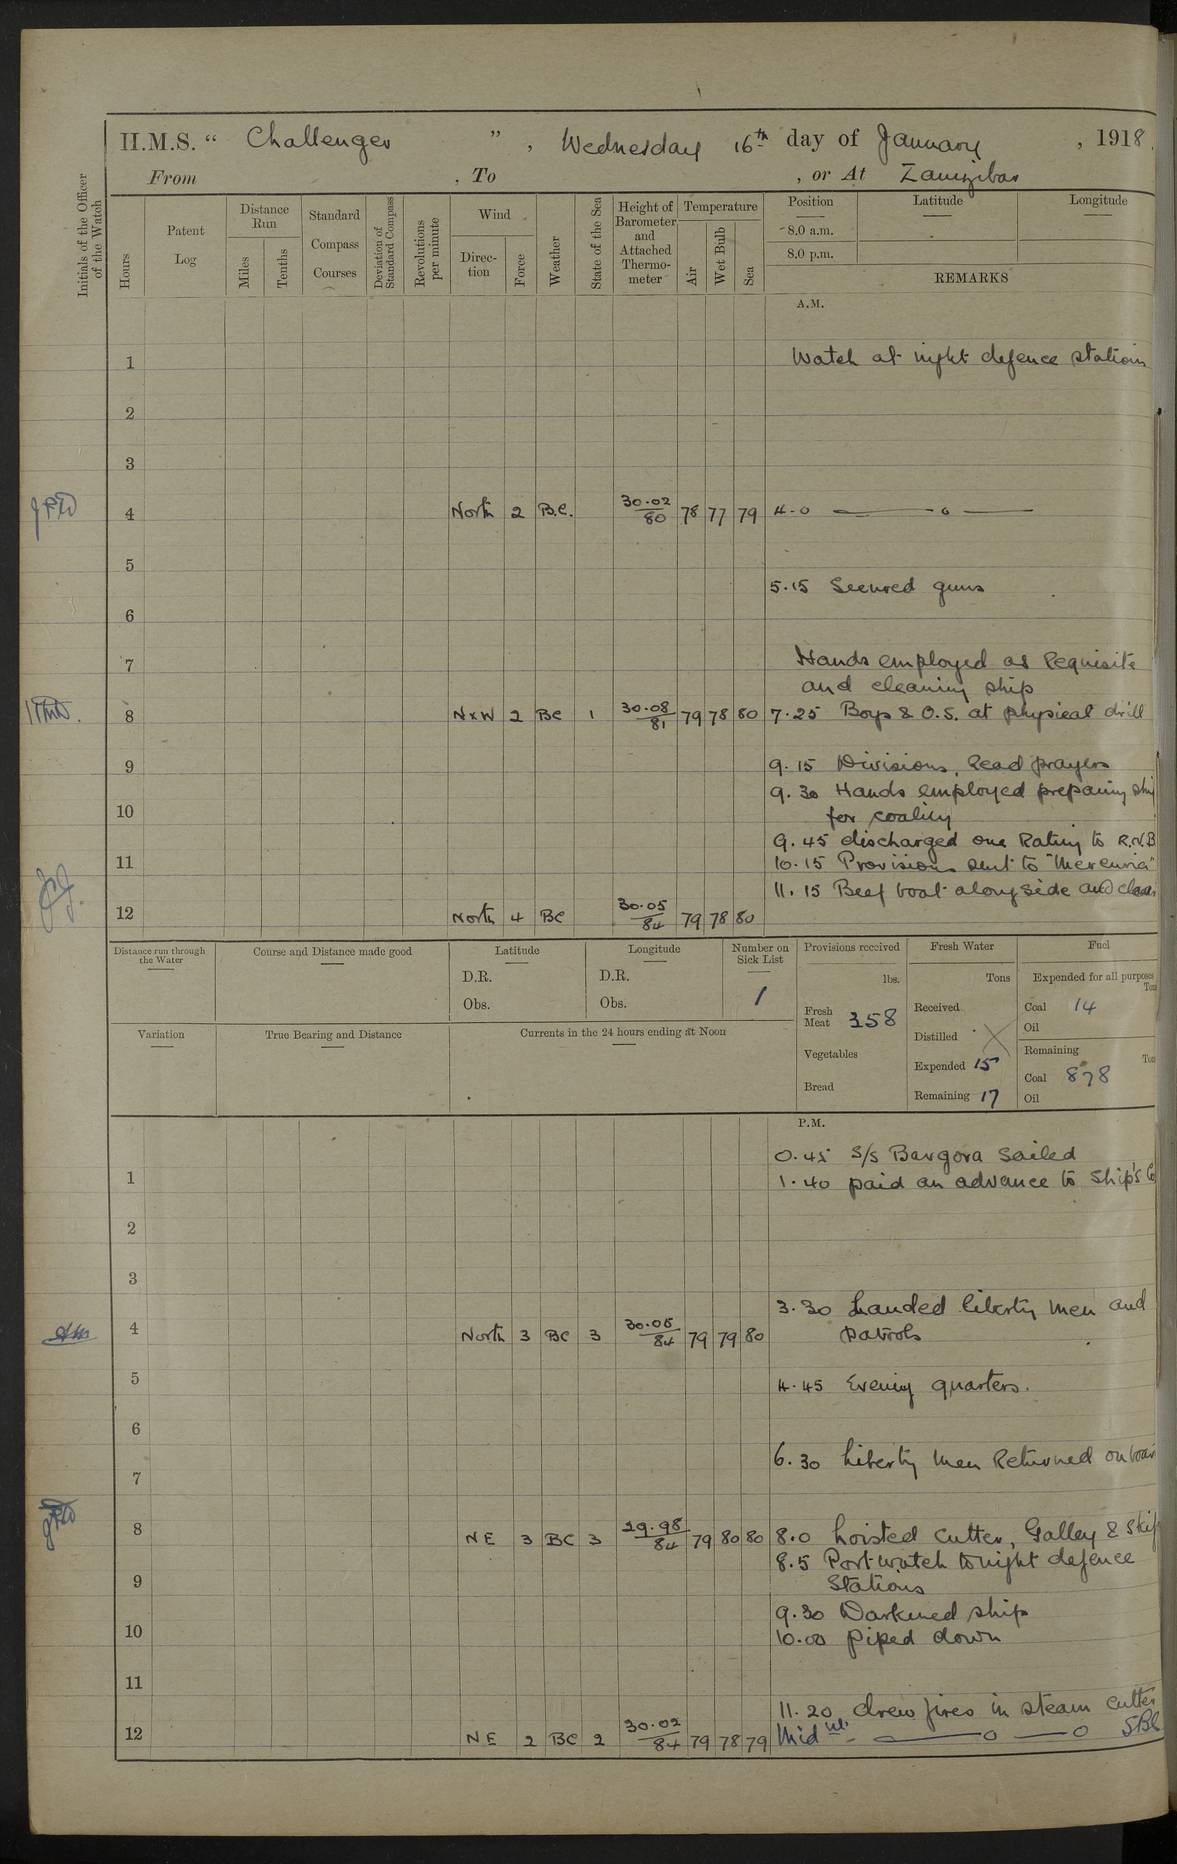 H.M.S. “ Challenger ” , Wednesday 16th day of January , 1918.
From , To , or At Zanzibar
Initials of the Officer of the Watch
Hours
Patent Log
Distance Run
Miles
Tenths
Standard Compass Courses
Deviation of Standard Compass
Revolutions per minute
Wind
Direction
Force
Weather
State of the Sea
Height of Barometer and Attached Thermometer
Temperature
Air
Wet Bulb
Sea
Position
Latitude
Longitude
8.0 a.m.
8.0 p.m.
REMARKS
A.M.
1 Watch at night defence stations
2
3
4 North 2 B.C. 30.02/80 78 77 79 4.0
5
5.15 Secured guns
6
7 Hands employed as requisite
and cleaning ship
8 N x W 2 BC 1 30.08/81 79 78 80 7.25 Boys & O.S. at physical drill
9 9.15 Divisions, Read prayers
9.30 Hands employed preparing ship
10 for coaling
9.45 discharged one Rating to R.N.B
11 10.15 Provisions sent to "
11.15 Beef boat alongside and
12 North 4 BC 30.05/84 79 78 80
Distance run through the Water
Course and Distance made good
Latitude
D.R.
Obs.
Longitude
D.R.
Obs.
Number on Sick List
1
Provisions received
lbs.
Fresh Meat 358
Vegetables
Bread
Fresh Water
Tons
Received
Distilled
Expended 15
Remaining 17
Fuel
Expended for all purposes
Coal 14
Oil
Remaining
Coal 878
Oil
Variation
True Bearing and Distance
Currents in the 24 hours ending at Noon
P.M.
0.45 S/S Bargora Sailed
1 1.40 paid an advance to Ship's Co
2
3
3.30 Landed liberty men and
4 North 3 BC 3 30.05/84 79 79 80 patrols
5 4.45 Evening quarters.
6
6.30 Liberty men Returned on
7
8 NE 3 BC 3 29.98/84 79 80 80 8.0 hoisted cutter, Galley & Skiff
8.5 Port watch to night defence
9 Stations
9.30 Darkened ship
10 10.00 piped down
11
11.20 drew fires in steam cutter
12 NE 2 BC 2 30.02/84 79 78 79 Midnt.